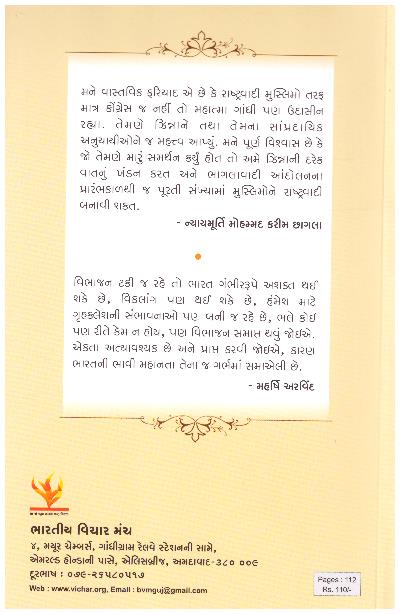 મને વાસ્તવિક ફરિયાદ એ છે કે રાષ્ટ્રવાદી મુસ્લિમો તરફ
માત્ર કોંગ્રેસ જ નહીં તો મહાત્મા ગાંધી પણ ઉદાસીન
રહ્યા. તેમણે ઝિન્નાને તથા તેમના સાંપ્રદાયિક
અનુયાયીઓને જ મહત્ત્વ આપ્યું. મને પૂર્ણ વિશ્વાસ છે કે
જો તેમણે મારું સમર્થન કર્યું હોત તો અમે ઝિન્નાની દરેક
વાતનું ખંડન કરત અને ભાગલાવાદી આંદોલનના
પ્રારંભકાળથી જ પૂરતી સંખ્યામાં મુસ્લિમોને રાષ્ટ્રવાદી
બનાવી શકત.
- ન્યાયમૂર્તિ મોહમ્મદ કરીમ છાગલા
વિભાજન ટકી જ રહે તો ભારત ગંભીરરૂપે અશક્ત થઈ
શકે છે, વિકલાંગ પણ થઈ શકે છે, હંમેશ માટે
ગૃહકલેશની સંભાવનાઓ પણ બની જ રહે છે, ભલે કોઈ
પણ રીતે કેમ ન હોય, પણ વિભાજન સમાપ્ત થવું જોઈએ.
એકતા અત્યાવશ્યક છે અને પ્રાપ્ત કરવી જોઈએ, કારણ
ભારતની ભાવી મહાનતા તેના જ ગર્ભમાં સમાએલી છે.
- મહર્ષિ અરવિંદ
ભારતીય વિચાર મંચ
૪, મયૂર ચેમ્બર્સ, ગાંધીગ્રામ રેલવે સ્ટેશનની સામે,
એમરલ્ડ હોન્ડાની પાસે, એલિસબ્રીજ, અમદાવાદ-૩૮૦ ૦૦૯
દૂરભાષ : ૦૭૯-૨૬૫૮૦૫૧૭
Web : www.vichar.org, Email : bvmguj@gmail.com
Pages : 112
Rs. 110/-